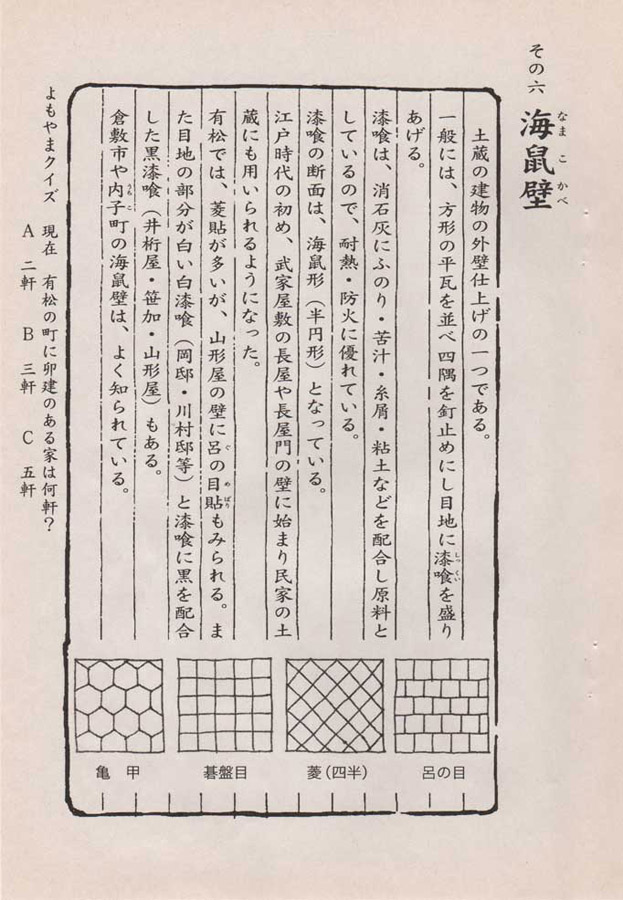 その六 海鼠壁
なまこかべ
土蔵の建物の外壁仕上げの一つである。
一般には、方形の平瓦を並べ四隅を釘止めにし目地に漆喰を盛り
しっくい
あげる。
漆喰は、消石灰にふのり・苦汁・糸屑・粘土などを配合し原料と
しているので、耐熱・防火に優れている。
漆喰の断面は、海鼠形（半円形）となっている。
江戸時代の初め、武家屋敷の長屋や長屋門の壁に始まり民家の土
蔵にも用いられるようになった。
有松では、菱貼が多いが、山形屋の壁に呂の目貼もみられる。ま
ぐめばり
た目地の部分が白い白漆喰（岡邸・川村邸等）と漆喰に黒を配合
した黒漆喰（井桁屋・笹加・山形屋）もある。
倉敷市や内子町の海鼠壁は、よく知られている。
うちこ
呂の目
菱（四半）
碁盤目
亀甲
よもやまクイズ 現在 有松の町に卯建のある家は何軒？
A 二軒 B 三軒 C 五軒